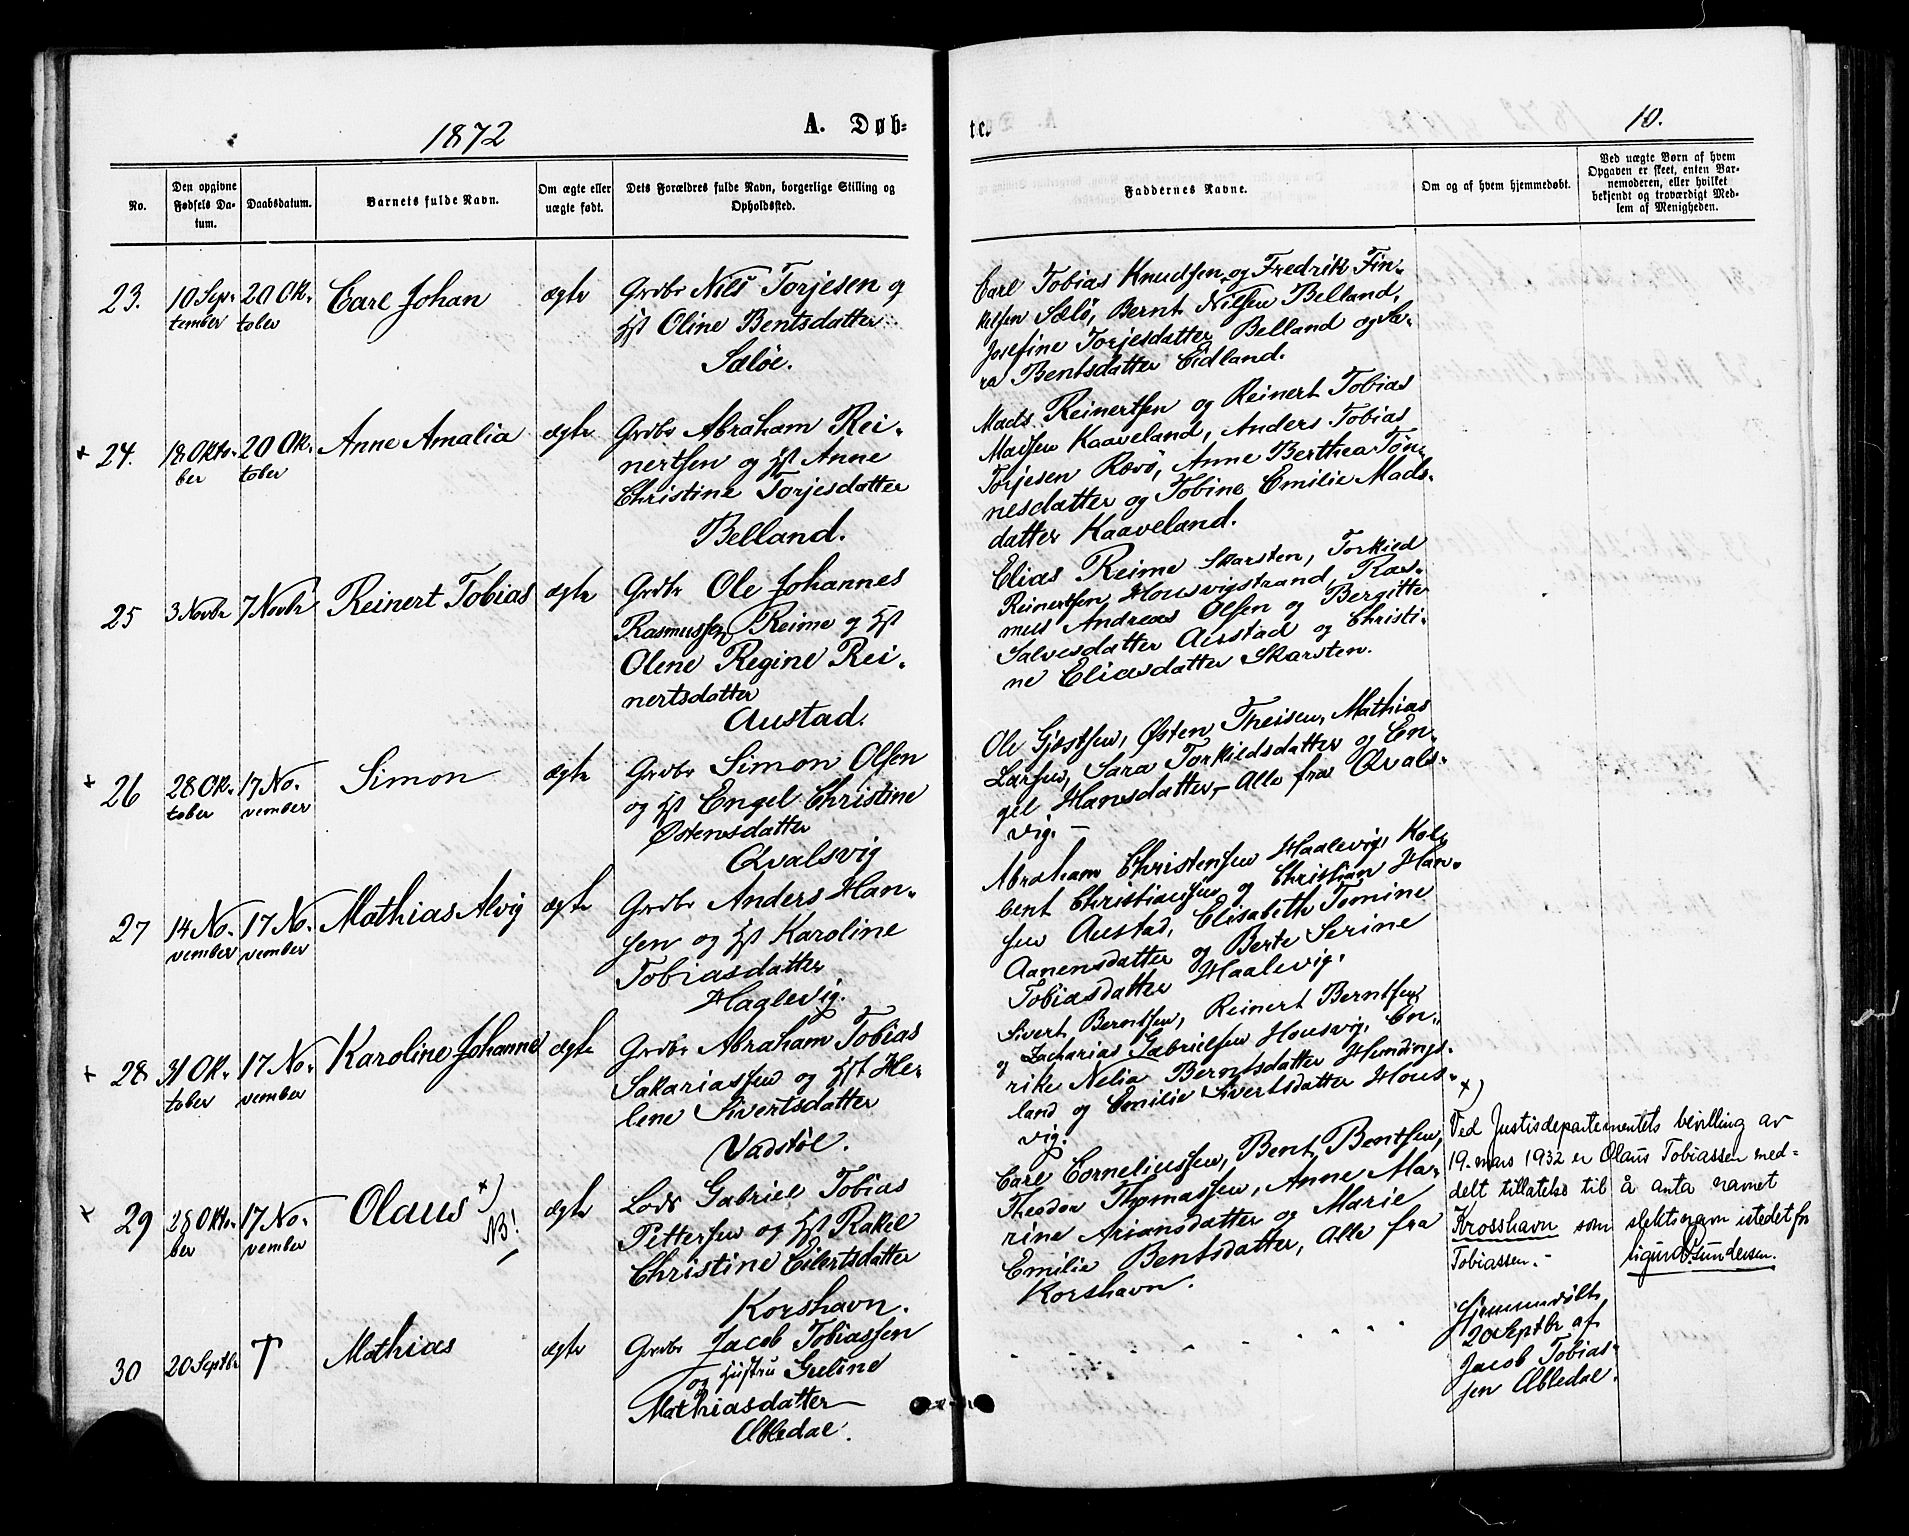 1872
A. Døb=
te.
10.
No.
Den opgivne Fødsels Da-tum.
Daabsdatum.
Barnets fulde Navn.
Om ægte eller uægte født.
Dets Forældres fulde Navn, borgerlige Stilling og Opholdsted.
Faddernes Navne.
Om og af hvem hjemmedøbt.
Ved uægte Børn af hvem Opgaven er skeet, enten Bar-nemoderen, eller hvilket bekjendt og troværdigt Med-lem af Menigheden.
23.
10 Sep-
tember
20 Ok-
tober
Carl Johan
ægte
Grdbr Nils Torjesen og
Hst Oline Bentsdatter
Sæløe.
Carl Tobias Knudsen og Fredrik Fin-
kelsen Sælø, Bernt Nilsen Belland,
Josefine Torjesdatter Belland og Sa-
ra Bentsdatter Eidland.
+ 24.
18 Okto-
ber
20 Ok-
tober
Anne Amalia
ægte
Grdbr Abraham Rei-
nertsen og Hst Anne
Christine Torjesdatter
Belland.
Mads Reinertsen og Reinert Tobias
Madsen Kaaveland, Anders Tobias
Torjesen Rævø, Anne Berthea Tøn-
nesdatter og Tobine Emilie Mads-
datter Kaaveland.
25
3 Novbr
7 Novbr
Reinert Tobias
ægte
Grdbr Ole Johannes
Rasmussen Reime og Hst
Olene Regine Rei-
nertsdatter
Austad.
Elias Reime Skarsten, Torkild
Reinertsen Housvigstrand, Ras-
mus Andreas Olsen og Bergitte
Salvesdatter Austad og Christi-
ne Eliasdatter Skarsten.
+ 26
28 Ok-
tober
17 No-
vember
Simon
ægte
Grdbr Simon Olsen
og Hst Engel Christine
Østensdatter
Qvalsvig
Ole Gjestsen, Østen Theisen, Mathias
Larsen, Sara Torkildsdatter og En-
gel Hansdatter, - Alle fra Qvals-
vig. -
27
14 No-
vember
17 No-
vember
Mathias Alvig
ægte
Grdbr Anders Han-
sen og Hst Karoline
Tobiasdatter
Haalevig.
Abraham Christensen Haalevig, Kol-
bent Christiansen og Christian Han-
sen Austad, Elisabeth Tomine
Aanensdatter og Berte Serine
Tobiasdatter Haalevig.
+ 28
31 Ok-
tober
17 No-
vember
Karoline Johanne
ægte
Grdbr Abraham Tobias
Sakariassen og Hst He-
lene Sivertsdatter
Vadstøl.
Sivert Berntsen, Reinert Berntsen
og Zacharias Gabrielsen Housvig, En-
rike Nelia Berntsdatter Hundings-
land og Emilie Sivertsdatter Hous-
vig.
+ 29
28 Okto-
ber
17 No-
vember
Olaus +)
NB!
ægte
Lods Gabriel Tobias
Pettersen og Hst Rakel
Christine Eilertsdatter
Korshavn.
Carl Corneliussen, Bent Bentsen,
Theodor Thomassen, Anne Ma-
rine Ariansdatter og Marie
Emilie Bentsdatter, alle fra
Korshavn.
+)
Ved Justisdepartementets bevilling av
19. mars 1932 er Olaus Tobiassen med-
delt tillatelse til å anta navnet
Krosshavn som slektsnavn istedet for
Tobiassen. -
Sigurd Gundersen.
30
20 Septbr
†
Mathias
ægte
Grdbr Jacob Tobiassen
og Hustru Guline
Mathiasdatter
Abledal.
Hjemmedøbt
20 Septbr af
Jacob Tobias-
sen Abledal.